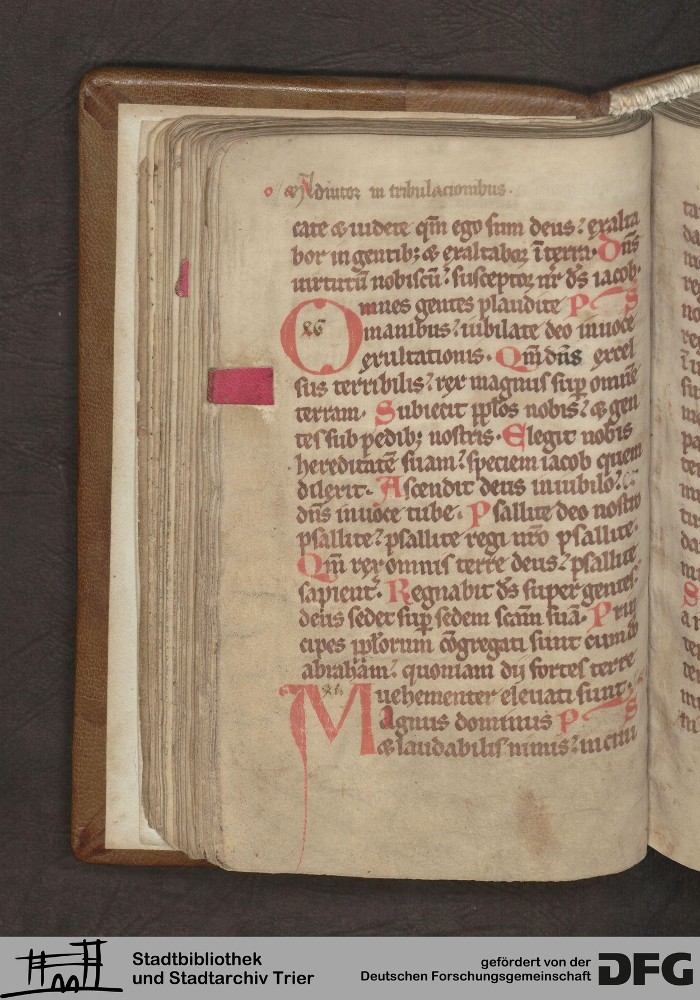 o / & Adiutor in tribulacionibus.
cate & uidete qm̄ ego sum deus: exalta
bor in gentib; & exaltabor ī terra. Dn̄s
uirtutū nobiscū: susceptor nr̄ ds̄ iacob.
Omnes gentes plaudite Ps
manibus: iubilate deo in uoce
exultationis. Qm̄ dn̄s excel
sus terribilis: rex magnus sup omnē
terram. Subiecit pp̄los nobis: & gen
tes sub pedib; nostris. Elegit nobis
hereditatē suam: speciem iacob quem
dilexit. Ascendit deus in iubilo:
dn̄s in uoce tube. Psallite deo nostro
psallite: psallite regi nr̄o psallite.
Qm̄ rex omnis terre deus: psallite
sapient̄. Regnabit ds̄ super gentes:
deus sedet sup sedem scām suā. Prin
cipes pp̄lorum cōgregati sunt cum dō
abrahām: quoniam dij fortes terre
uehementer eleuati sunt.
Magnus dominus Ps
& laudabilis nimis: in ciui
Stadtbibliothek
und Stadtarchiv Trier
gefördert von der
Deutschen Forschungsgemeinschaft
DFG